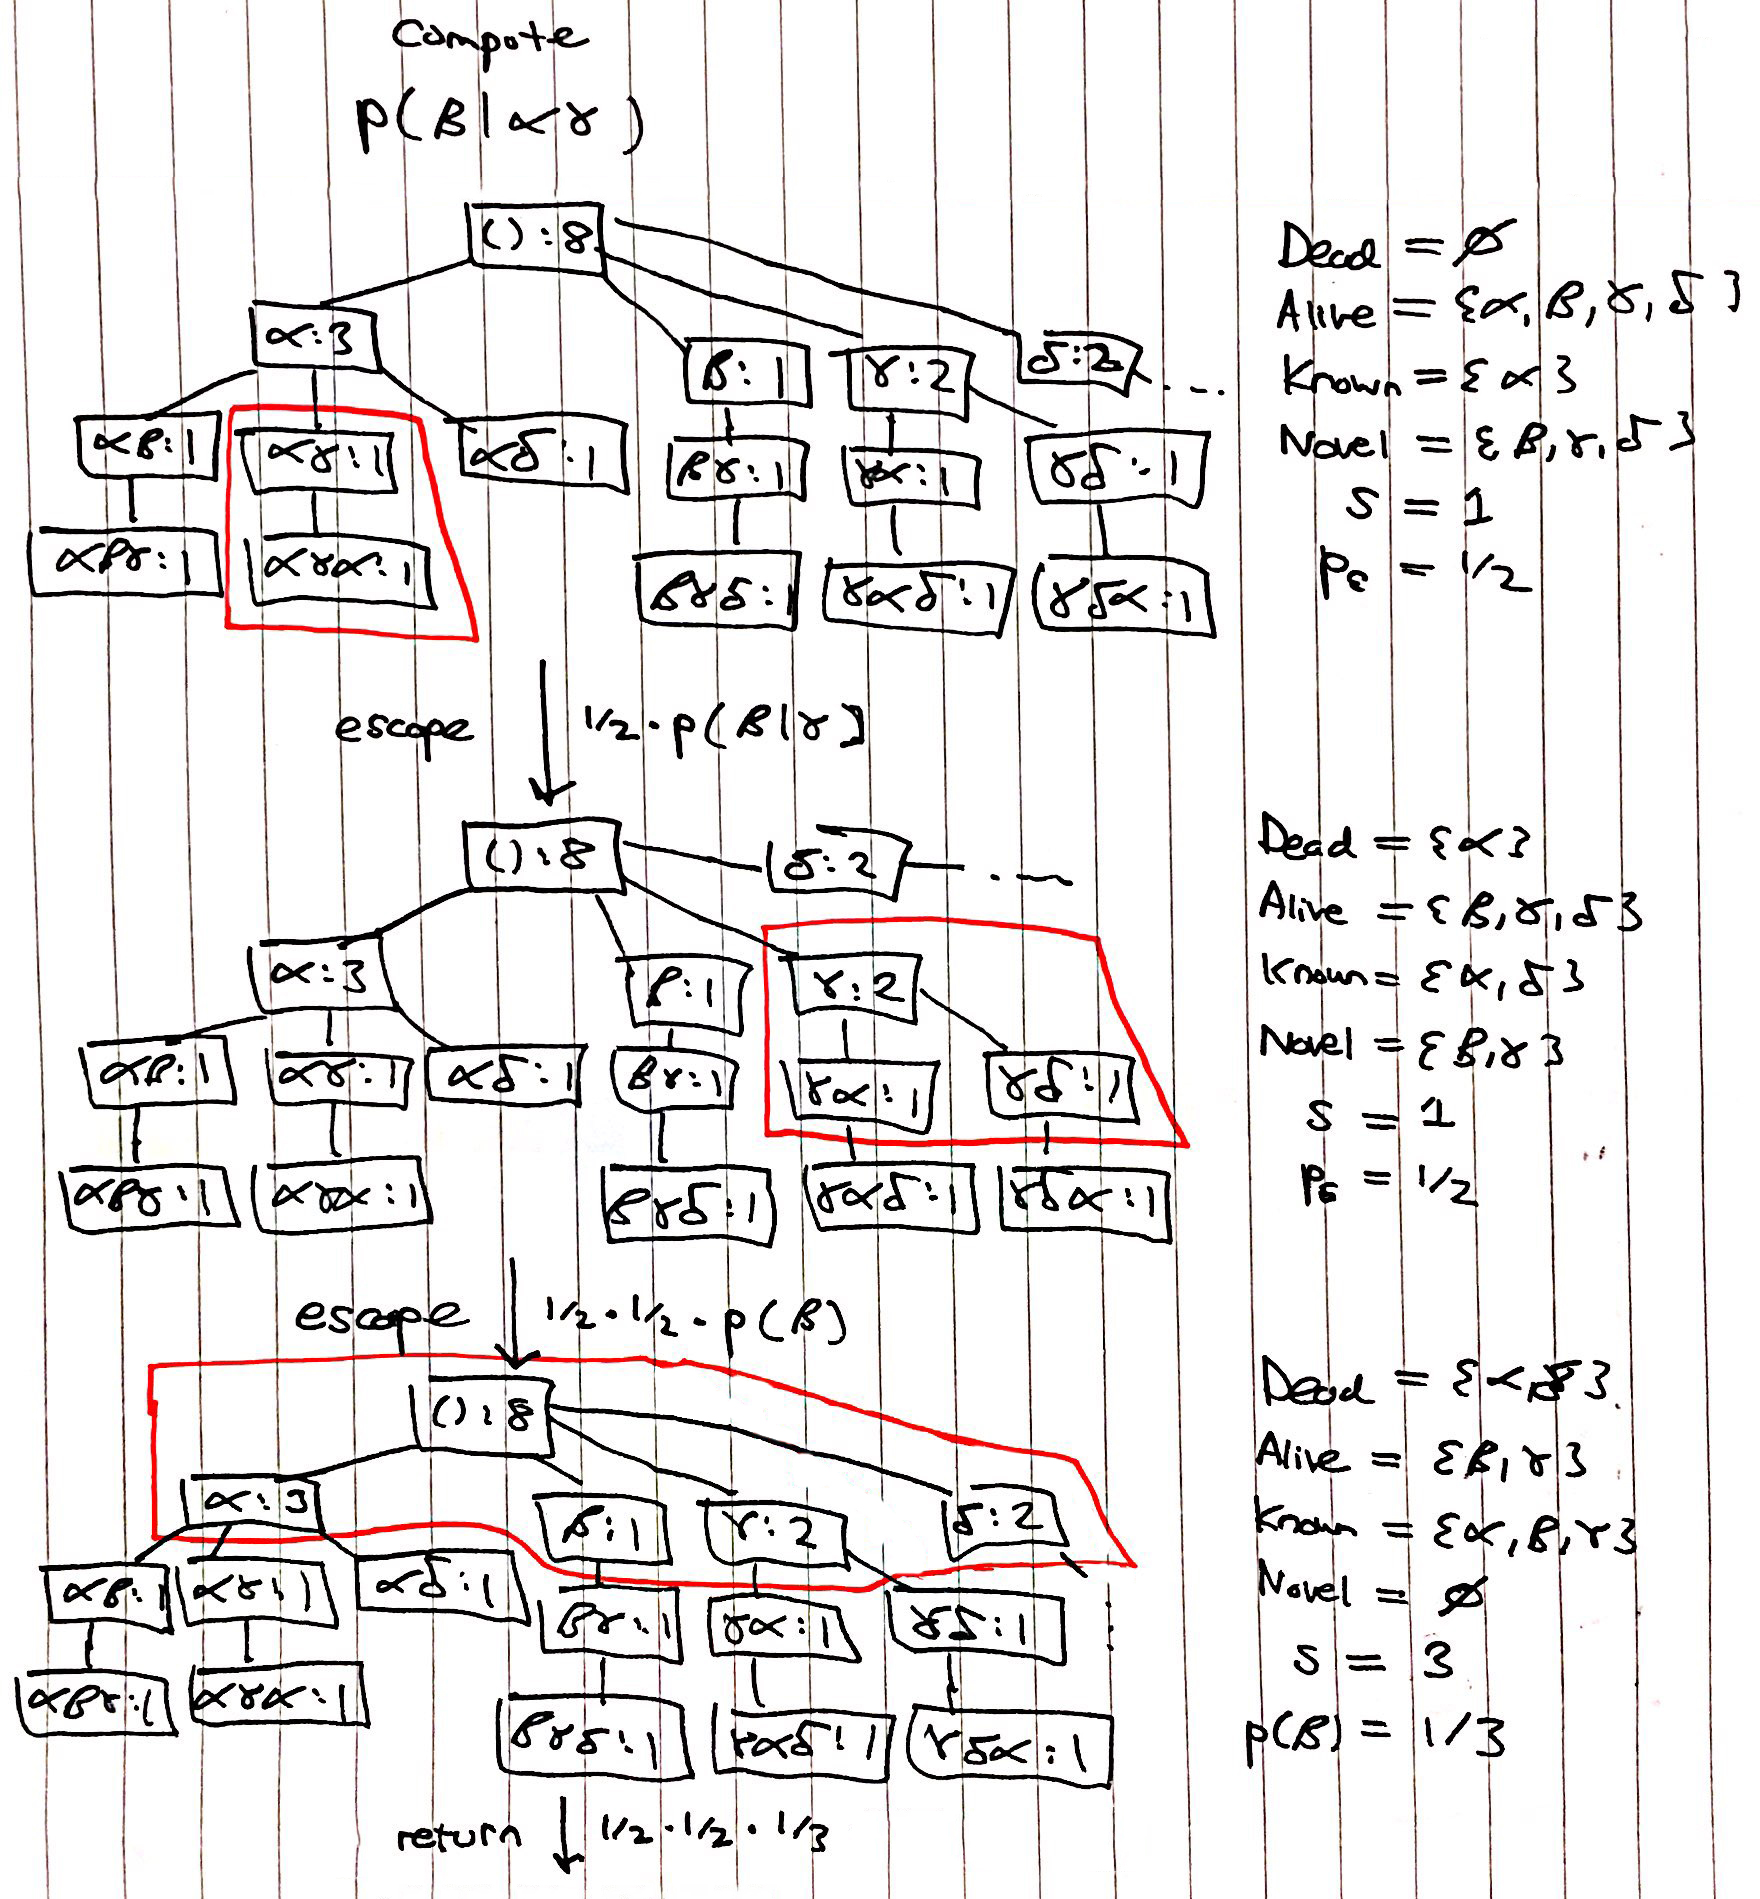 Compute
p(β|αγ)
():8
α:3
β:1
γ:2
δ:2
...
αβ:1
αγ:1
αδ:1
βγ:1
γα:1
γδ:1
αβγ:1
αγα:1
βγδ:1
γαδ:1
γδα:1
Dead = ∅
Alive = {α, β, γ, δ}
Known = {α}
Novel = {β, γ, δ}
S = 1
pε = 1/2
escape
1/2 · p(β|γ]
():8
δ:2
α:3
β:1
γ:2
αβ:1
αγ:1
αδ:1
βγ:1
γα:1
γδ:1
αβγ:1
αγα:1
βγδ:1
γαδ:1
γδα:1
Dead = {α}
Alive = {β, γ, δ}
Known = {α, δ}
Novel = {β, γ}
S = 1
pε = 1/2
escape
1/2 · 1/2 · p(β)
():8
α:3
β:1
γ:2
δ:2
αβ:1
αγ:1
αδ:1
βγ:1
γα:1
γδ:1
αβγ:1
αγα:1
βγδ:1
γαδ:1
γδα:1
Dead = {α, δ}
Alive = {β, γ}
Known = {α, β, γ}
Novel = ∅
S = 3
p(β) = 1/3
return
1/2 · 1/2 · 1/3